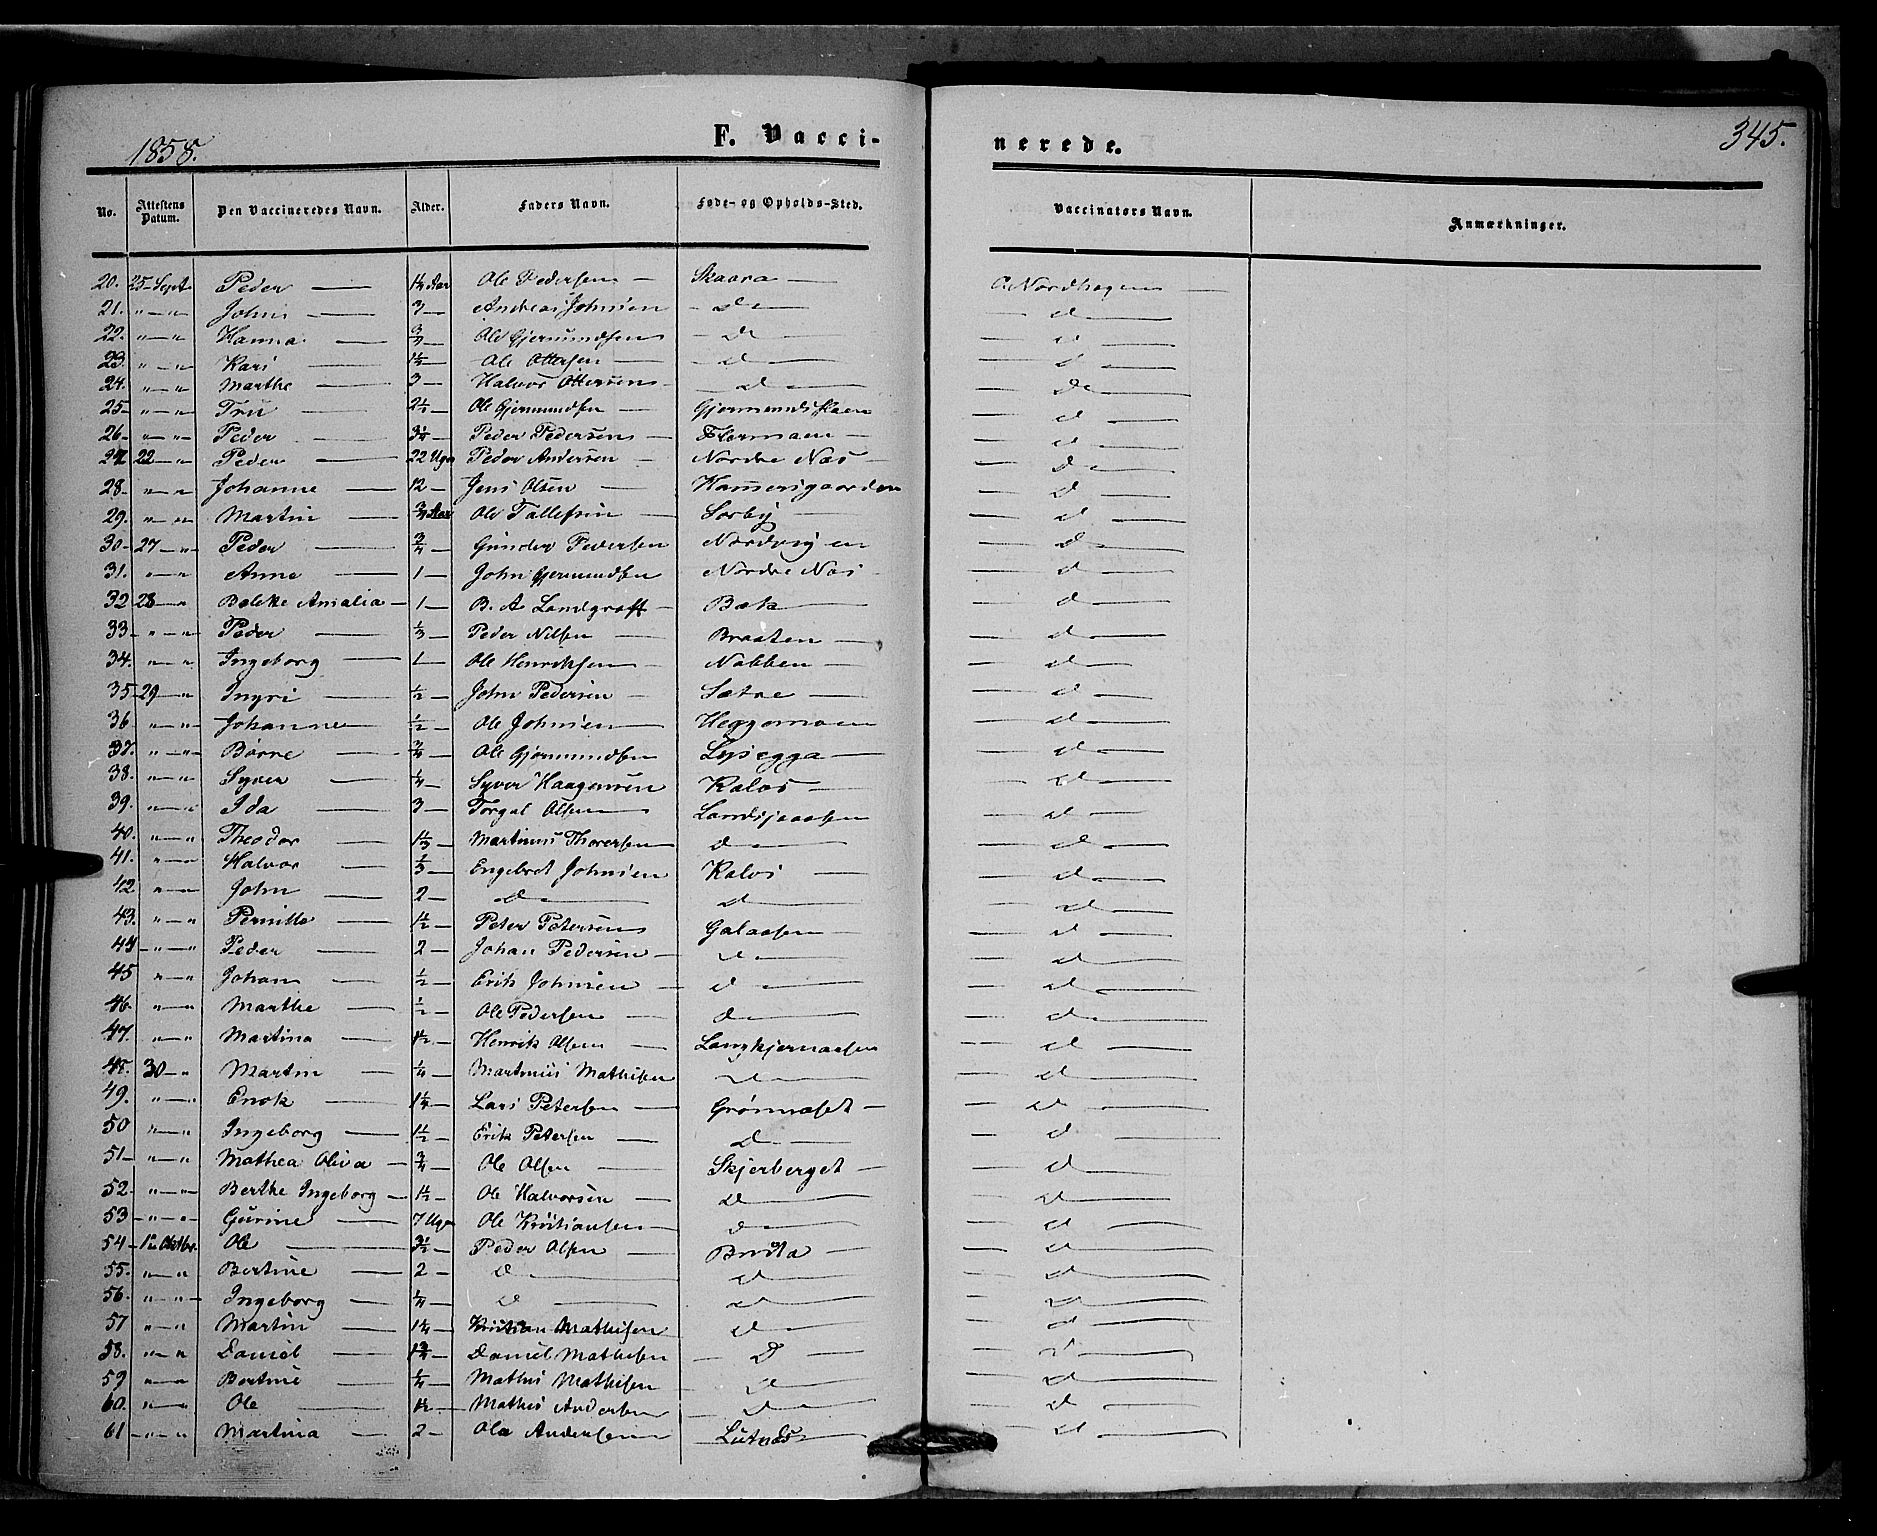 1858. F. Vacci- nerede. 345.
No. Attestens Datum. Den Vaccineredes Navn. Alder. Faders Navn. Føde- og Opholds-Sted. Vaccinatørs Navn. Anmærkninger.
20. 25 Sept Peder — 1½ Aar Ole Pedersen — Skaara — O Nordhagen —
21. " — " Johns — 3 — Andreas Johnsen — d — — d —
22. " — " Hanna — Ole Gjermundsen — d — — d —
23. " — " Kari — 1½ — Ole Ottersen — — d — — d —
24. " — " Marthe — 3 — Halvor Ottersen — — d — — do —
25 — " — " Tru — 2½ — Ole Gjermundsen — Gjermundskaen — d —
26 — " — " Peder — Peder Pedersen — Flermoen — — d —
27 22 — " Peder — 22 Uger Peder Andersen — Nordre Næs — — d —
28 — " — " Johanne — 12 — Jens Olsen — Hammersgaarden — d —
29. " — " Martin — ¾ Aar Ole Tallefsen — Sørby — — d —
30 — 27 — " Peder — ¾ — Gunder Pedersen Nordvigen — d —
31. " — " Anne — 1 — John Gjermundsen Nordre Næs — — d —
32 28 — " Bolette Amalia — 1 — B. A Landgraff — Bæk — — d —
33 — " — " Peder — ⅓ — Peder Nilsen — Braaten — — d —
34. " — " Ingeborg — 1 — Ole Henriksen — Nabben — — d —
35 — 29 — " Ingri — ½ — John Pedersen — Sætre — — d —
36 " — " Johanne — ½ — Ole Johnsen — Heggemoen — d —
37. " — " Børre — ¾ — Ole Gjermundsen Lysegga — — d —
38. " — " Syver — ¼ — Syver Haagensen Kalos — — d —
39. " — " Ida — 3 — Torgal Olsen — Landsjøaasen — d —
40. " — " Theodor — 1⅓ — Martinus Thoresen — d — — d —
41. " — " Halvor — ⅓ — Engebret Johnsen Kalos — — d —
42 " — " John — 2 — d — d — — d —
43. " — " Pernille — 1½ — Peter Petersen Galaasen — — d —
44 — " — " Peder — 2 — Johan Pedersen — — d — — d —
45 " — " Johan — ½ — Erik Johnsen — d — — d —
46 " — " Marthe — ½ — Ole Pedersen — d — — d —
47. " — " Martina — 1½ — Henrik Olsen — Langkjernaasen — d —
48. 30 — " Martin — ¼ — Martinus Mathisen — d — — d —
49. " — " Enok — 1¼ — Lars Petersen — Grønnæset — — d —
50 " — " Ingeborg — 1½ — Erik Petersen — d — — d —
51 — " — " Mathea Oliva — ¾ — Ole Olsen — Skjerberget — — d —
52 — " — " Berthe Ingeborg — 1½ — Ole Halvorsen — d — — d —
53 — " — " Gurine — 7 Uger Ole Kristiansen — d — — d —
54 — 1ste Octbr. Ole — 3½ — Peder Olsen — Bruta — — d —
55. " — " Bertine — 2 — d — d — — d —
56. " — " Ingeborg — ¼ — d — d — — d —
57 " — " Martin — 1¼ — Kristian Mathisen — d — — d —
58. " — " Daniel — 1¾ — Daniel Mathisen — d — — d —
59 " — " Bertine — ¼ — Mathis Mathisen — d — — d —
60. " — " Ole — 1½ — Mathis Andersen — d — — d —
61 — " — " Martina — 2 — Ole Andersen — Lutnes — — d —